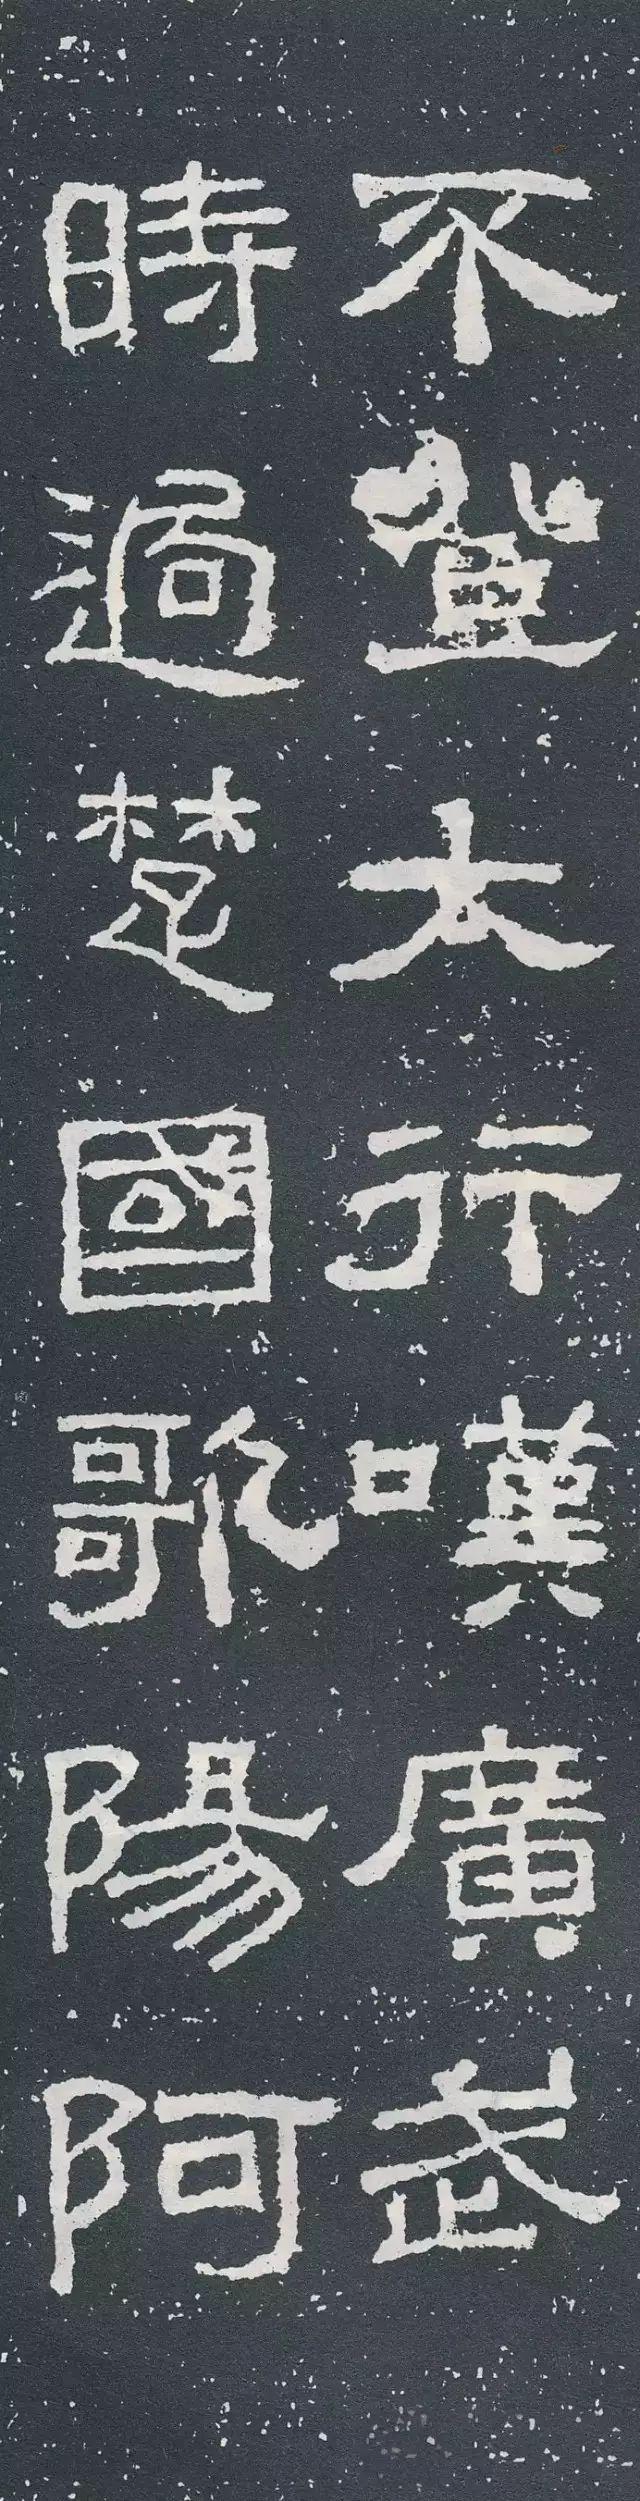 不登太行嘆廣武
時過楚國歌陽阿